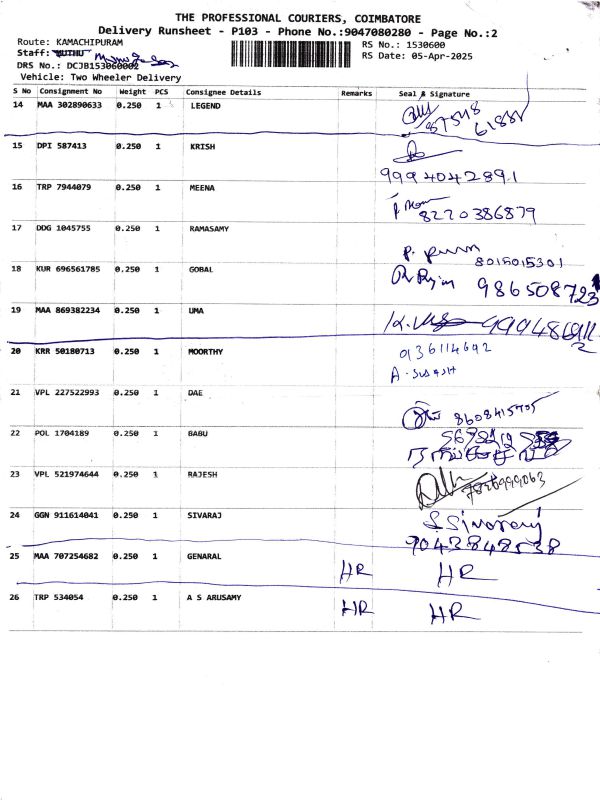 THE PROFESSIONAL COURIERS, COIMBATORE
Delivery Runsheet - P103 - Phone No.:9047080280 - Page No.:2
Route: KAMACHIPURAM
RS No.: 1530600
Staff:
RS Date: 05-Apr-2025
DRS No.: DCJB153060002
Vehicle: Two Wheeler Delivery
S No Consignment No Weight PCS Consignee Details Remarks Seal & Signature
14 MAA 302890633 0.250 1 LEGEND
15 DPI 587413 0.250 1 KRISH
9994042891
16 TRP 7944079 0.250 1 MEENA
8220386879
17 DDG 1045755 0.250 1 RAMASAMY
8015015301
18 KUR 696561785 0.250 1 GOBAL
986508723
19 MAA 869382234 0.250 1 UMA
20 KRR 50180713 0.250 1 MOORTHY
21 VPL 227522993 0.250 1 DAE
22 POL 1704189 0.250 1 BABU
23 VPL 521974644 0.250 1 RAJESH
24 GGN 911614041 0.250 1 SIVARAJ
S.Sivaraj
9043848538
25 MAA 707254682 0.250 1 GENARAL HR HR
26 TRP 534054 0.250 1 A S ARUSAMY HR HR